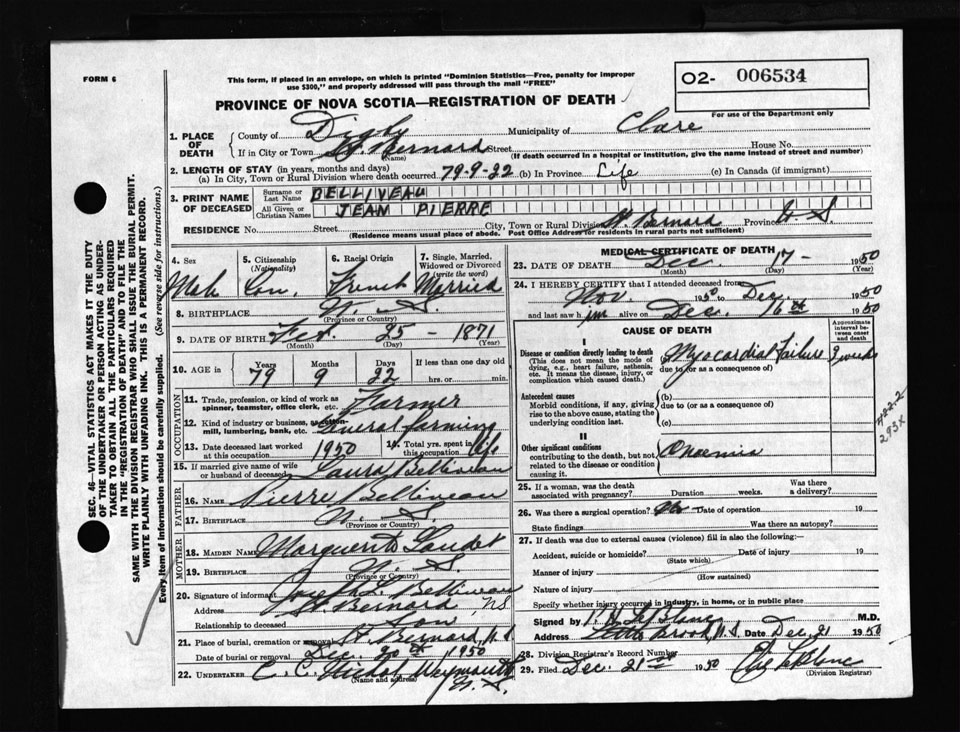 FORM 6
This form, if placed in an envelope, on which is printed "Dominion Statistics—Free, penalty for improper
use $300," and properly addressed will pass through the mail "FREE"
O2- 006534
For use of the Department only
PROVINCE OF NOVA SCOTIA—REGISTRATION OF DEATH
1. PLACE OF DEATH { County of Digby Municipality of Clare
If in City or Town St. Bernard Street House No.
(Name) (If death occurred in a hospital or institution, give the name instead of street and number)
2. LENGTH OF STAY (in years, months and days)
(a) In City, Town or Rural Division where death occurred 79-9-22 (b) In Province Life (c) In Canada (if immigrant)
3. PRINT NAME OF DECEASED { Surname or Last Name BELLIVEAU
All Given or Christian Names JEAM PIERRE
RESIDENCE No. Street City, Town or Rural Division St. Bernard Province N. S.
(Residence means usual place of abode. Post Office Address for residents in rural parts not sufficient)
4. Sex Male
5. Citizenship (Nationality) Can.
6. Racial Origin French
7. Single, Married, Widowed or Divorced (write the word) Married
8. BIRTHPLACE N. S.
(Province or Country)
9. DATE OF BIRTH Feb. 25 - 1871
(Month) (Day) (Year)
10. AGE in { Years 79 Months 9 Days 22 If less than one day old hrs. or min.
OCCUPATION
11. Trade, profession, or kind of work as spinner, teamster, office clerk, etc. Farmer
12. Kind of industry or business, as cotton-mill, lumbering, bank, etc. General farming
13. Date deceased last worked at this occupation 1950
14. Total yrs. spent in this occupation life
15. If married give name of wife or husband of deceased Laura Belliveau
FATHER
16. NAME Pierre Belliveau
17. BIRTHPLACE N. S.
(Province or Country)
MOTHER
18. MAIDEN NAME Marguerite Gaudet
19. BIRTHPLACE N. S.
(Province or Country)
20. Signature of informant Joseph L. Belliveau
Address St. Bernard, NS
Relationship to deceased son
21. Place of burial, cremation or removal St. Bernard, N. S.
Date of burial or removal Dec. 20th 1950
22. UNDERTAKER C. C. Nichol, Weymouth N. S.
(Name and Address)
MEDICAL CERTIFICATE OF DEATH
23. DATE OF DEATH Dec. 17 - 1950
(Month) (Day) (Year)
24. I HEREBY CERTIFY that I attended deceased from
Nov. 1950 to Dec. 1950
and last saw him alive on Dec. 16th 1950
CAUSE OF DEATH
Approximate interval between onset and death
I
Disease or condition directly leading to death
(This does not mean the mode of dying, e.g., heart failure, asthenia, etc. It means the disease, injury, or complication which caused death.)
Myocardial Failure 3 weeks
due to (or as a consequence of)
Antecedent causes
Morbid conditions, if any, giving rise to the above cause, stating the underlying condition last.
(b)
due to (or as a consequence of)
(c)
II
Other significant conditions
contributing to the death, but not related to the disease or condition causing it.
Anaemia
422-2
293X
25. If a woman, was the death associated with pregnancy? Duration weeks. Was there a delivery?
26. Was there a surgical operation? No Date of operation 19
State findings Was there an autopsy?
27. If death was due to external causes (violence) fill in also the following:—
Accident, suicide or homicide? Date of injury 19
(State which)
Manner of injury
(How sustained)
Nature of injury
Specify whether injury occurred in industry, in home, or in public place
Signed by LeBlanc M.D.
Address Little Brook, N. S. Date Dec. 21 1950
28. Division Registrar's Record Number
29. Filed Dec. 21st 1950 LeBlanc
(Division Registrar)
SEC. 46—VITAL STATISTICS ACT MAKES IT THE DUTY
OF THE UNDERTAKER OR PERSON ACTING AS UNDERTAKER TO OBTAIN ALL THE PARTICULARS REQUIRED
IN THE "REGISTRATION OF DEATH" AND TO FILE THE
SAME WITH THE DIVISION REGISTRAR WHO SHALL ISSUE THE BURIAL PERMIT.
WRITE PLAINLY WITH UNFADING INK. THIS IS A PERMANENT RECORD.
Every item of information should be carefully supplied. (See reverse side for instructions.)